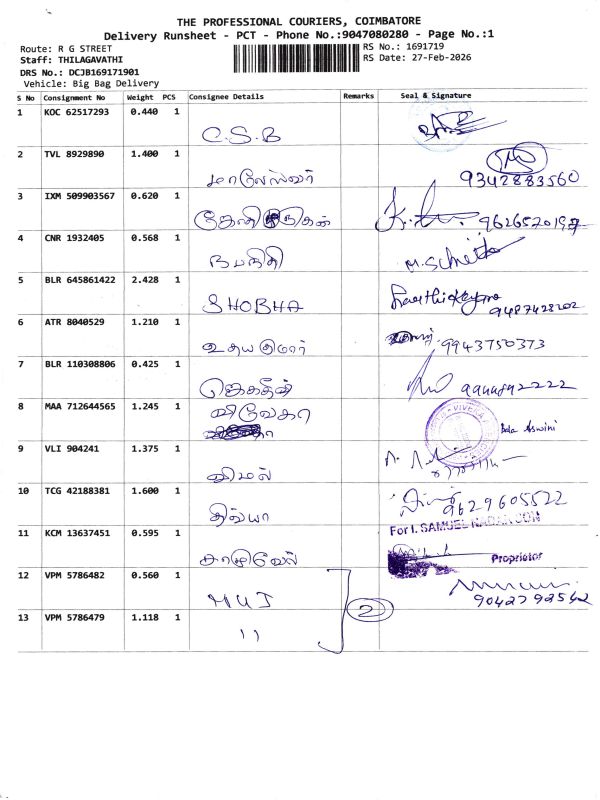 THE PROFESSIONAL COURIERS, COIMBATORE
Delivery Runsheet - PCT - Phone No.:9047080280 - Page No.:1
Route: R G STREET
RS No.: 1691719
Staff: THILAGAVATHI
RS Date: 27-Feb-2026
DRS No.: DCJB169171901
Vehicle: Big Bag Delivery
S No Consignment No Weight PCS Consignee Details Remarks Seal & Signature
1 KOC 62517293 0.440 1
C.S.B
2 TVL 8929890 1.400 1
மாலேஸ்வர் 9342883560
3 IXM 509903567 0.620 1
9626520197
4 CNR 1932405 0.568 1
நபநிதி
5 BLR 645861422 2.428 1
SHOBHA 9487428202
6 ATR 8040529 1.210 1
உதயகுமார் 9943750373
7 BLR 110308806 0.425 1
ஜெகதீஸ்
8 MAA 712644565 1.245 1
விவேகா
Bala Aswini
9 VLI 904241 1.375 1
விமல்
10 TCG 42188381 1.600 1
திவ்யா 9629605522
11 KCM 13637451 0.595 1
For I. SAMUEL NADAR SON
Proprietor
12 VPM 5786482 0.560 1
MUJ 2 9042792542
13 VPM 5786479 1.118 1
"